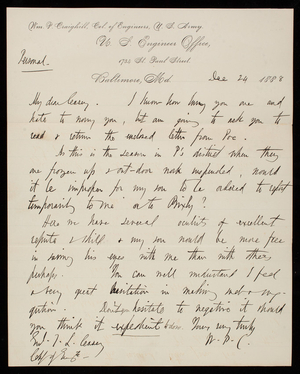 Wm. P. Craighill, Col. of Engineers, U. S. Army.
U. S. Engineer Office,
Personal.
1723 St. Paul Street.
Baltimore, Md. Dec 24 1888
My dear Casey. I know how busy you are and
hate to worry you, but am going to ask you to
read & return the enclosed letter from Poe.
As this is the season in P's district when they
are frozen up & out-door work suspended, would
it be improper for my son to be ordered to report
temporarily to me or to ?
Here we have several oculists of excellent
repute & skill & my son would be more free
in using his eyes with me than with others
perhaps. You can well understand I feel
a very great hesitation in making such a sug-
gestion. Don't you hesitate to negative it should
you think it expedient to do so. Yours very truly
Genl. T. L. Casey W. P. C.
Chf of Eng